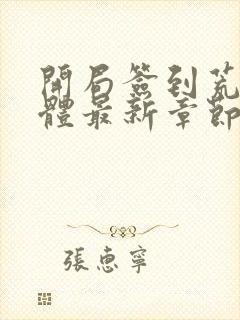 開局簽到荒
體最新章節
張惠寧